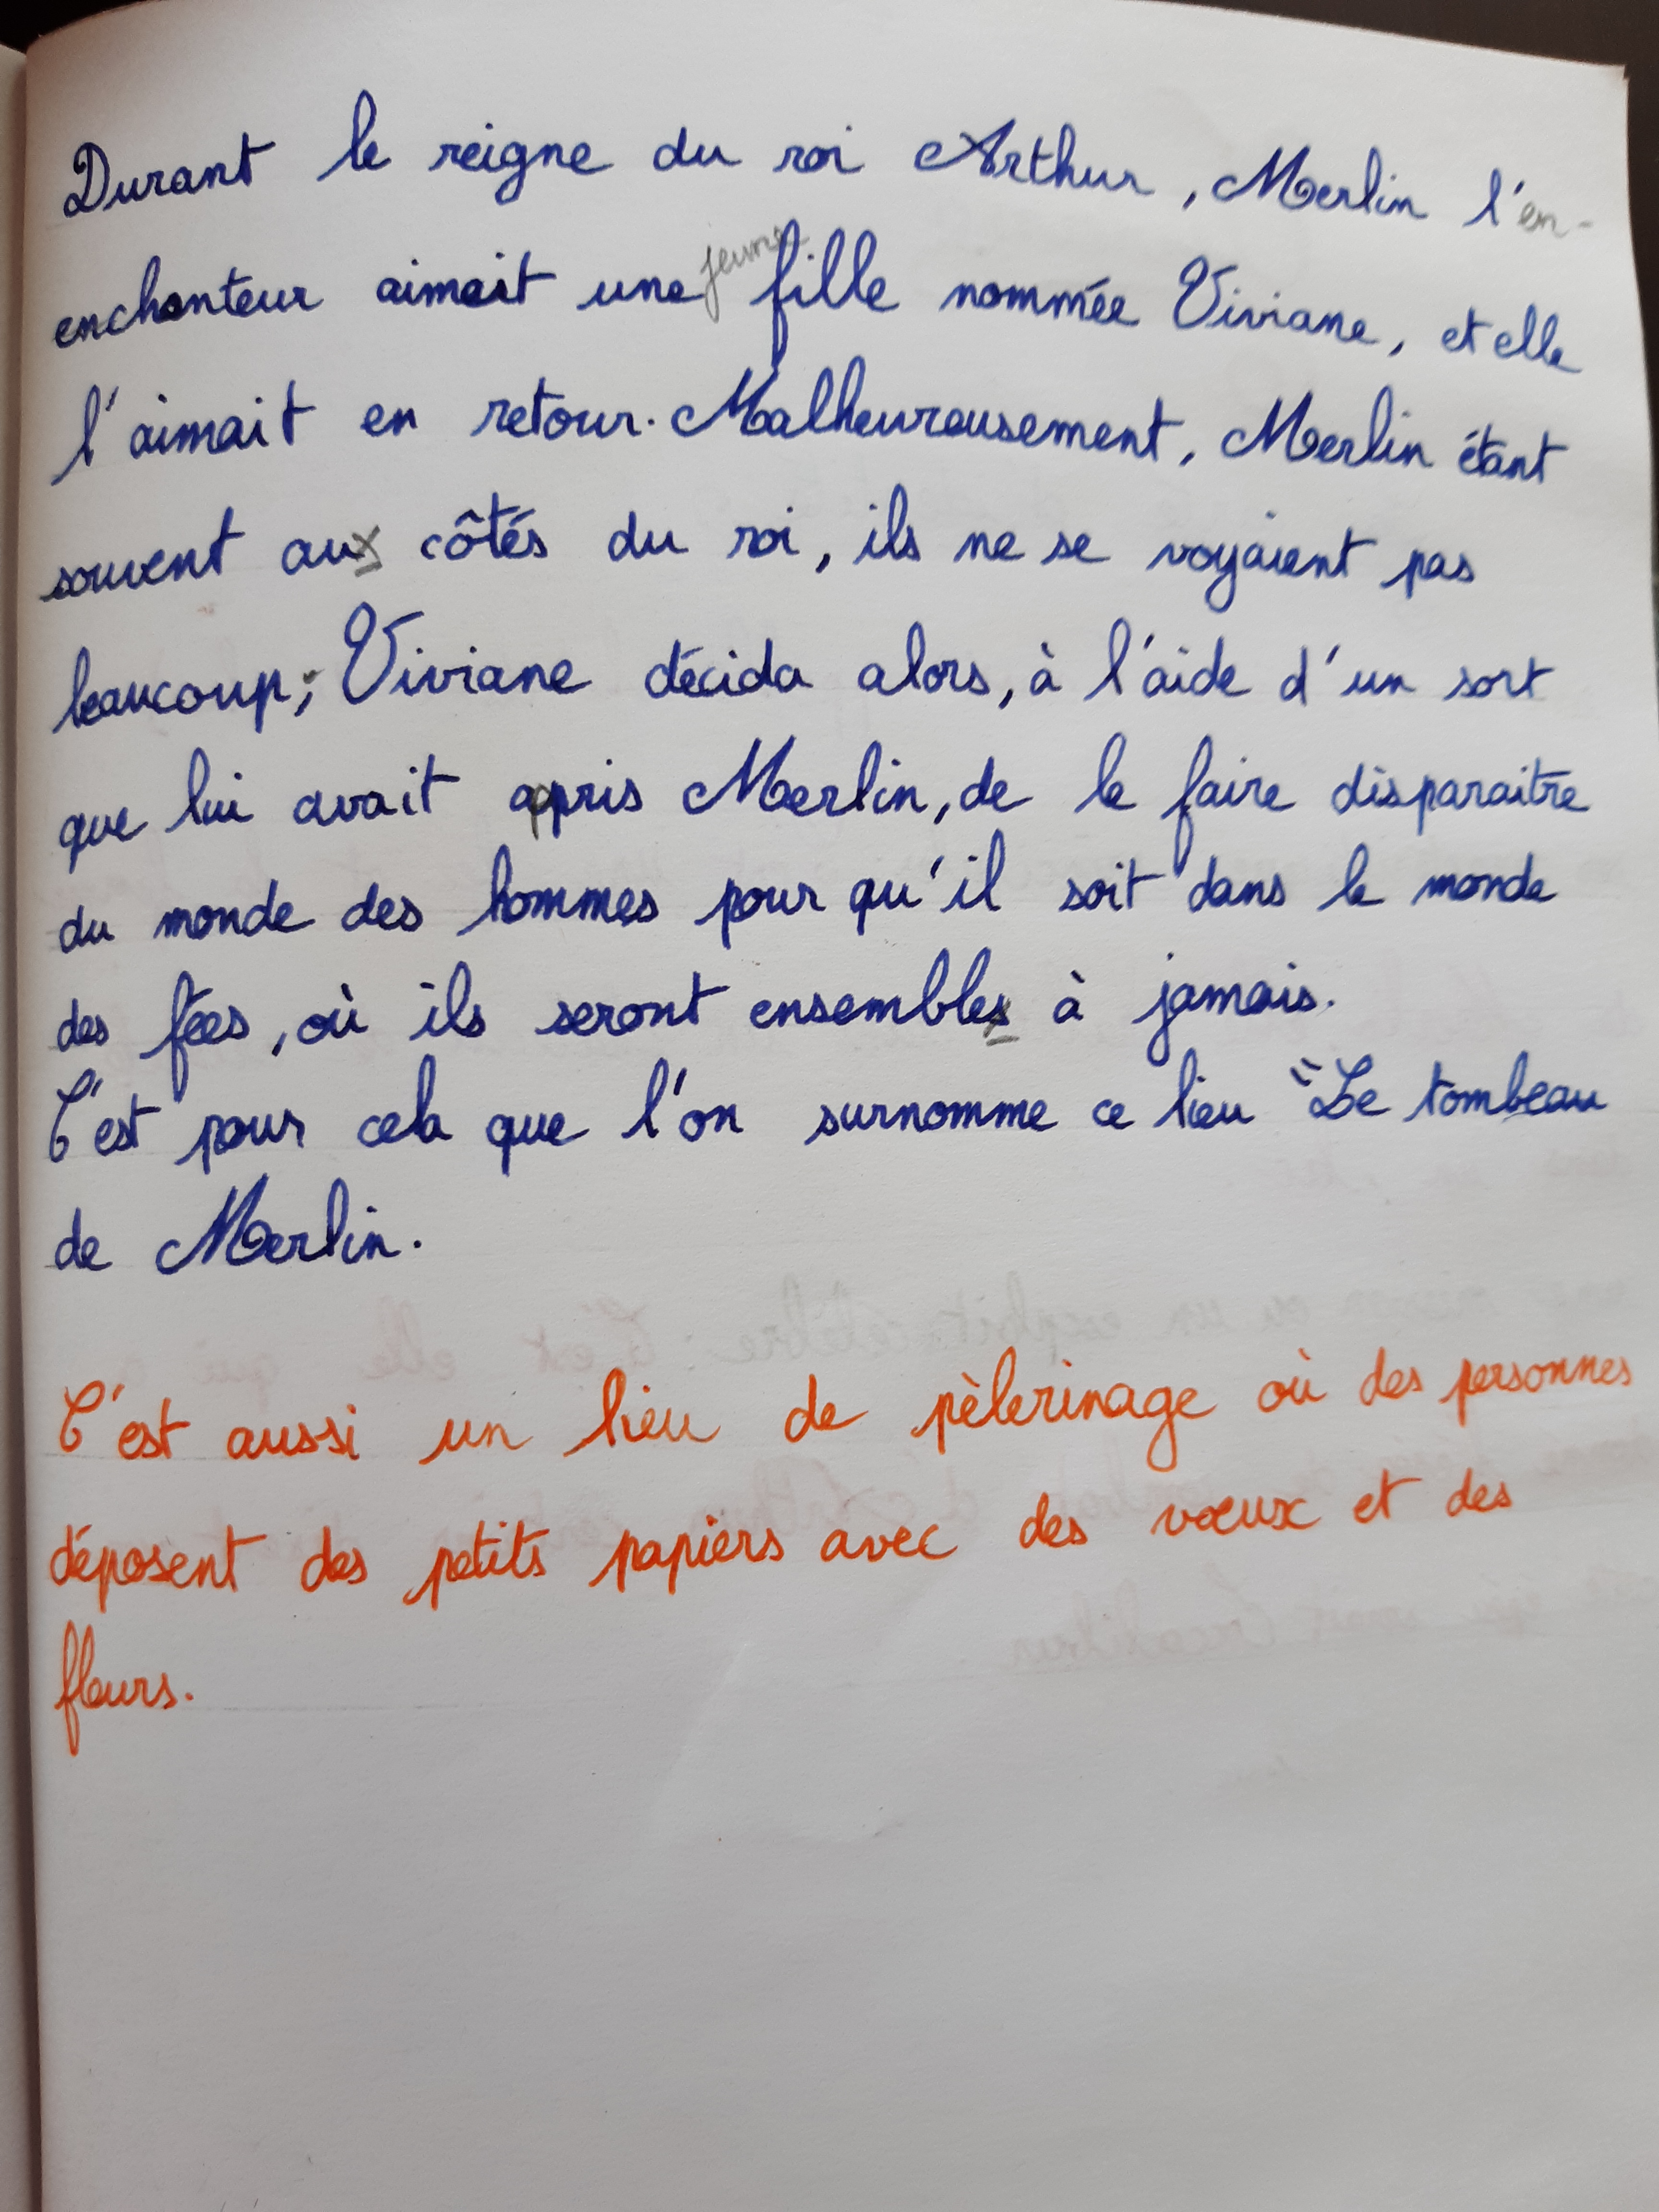 Durant le reigne du roi Arthur, Merlin l'en-
enchanteur aimait une jeune fille nommée Viviane, et elle
l'aimait en retour. Malheureusement, Merlin étant
souvent aux côtés du roi, ils ne se voyaient pas
beaucoup; Viviane décida alors, à l'aide d'un sort
que lui avait appris Merlin, de le faire disparaitre
du monde des hommes pour qu'il soit dans le monde
des fées, où ils seront ensembles à jamais.
C'est pour cela que l'on surnomme ce lieu "Le tombeau
de Merlin.
C'est aussi un lieu de pèlerinage où des personnes
déposent des petits papiers avec des vœux et des
fleurs.